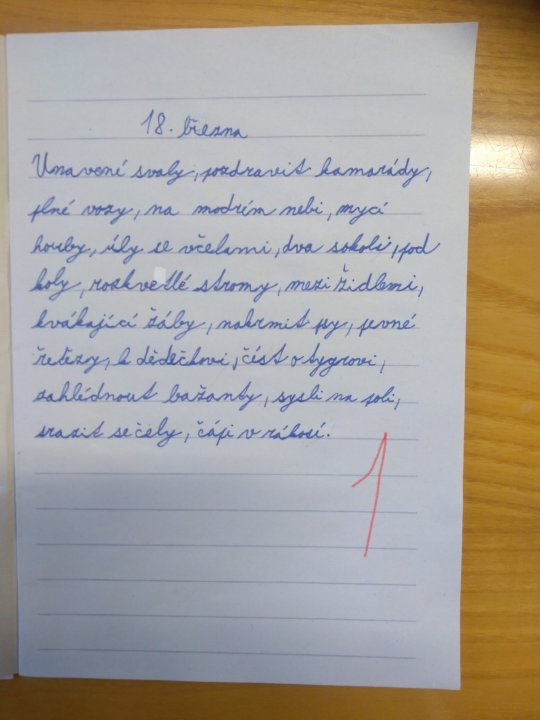 18. března
Unavené svaly, pozdravit kamarády,
plné vozy, na modrém nebi, mycí
houby, úly se včelami, dva sokoli, pod
koly, rozkvetlé stromy, mezi židlemi,
kvákající žáby, nakrmit psy, pevné
řetězy, k dědečkovi, číst o tygrovi,
zahlédnout bažanty, sysli na poli,
srazit se čely, čápi v rákosí.
1